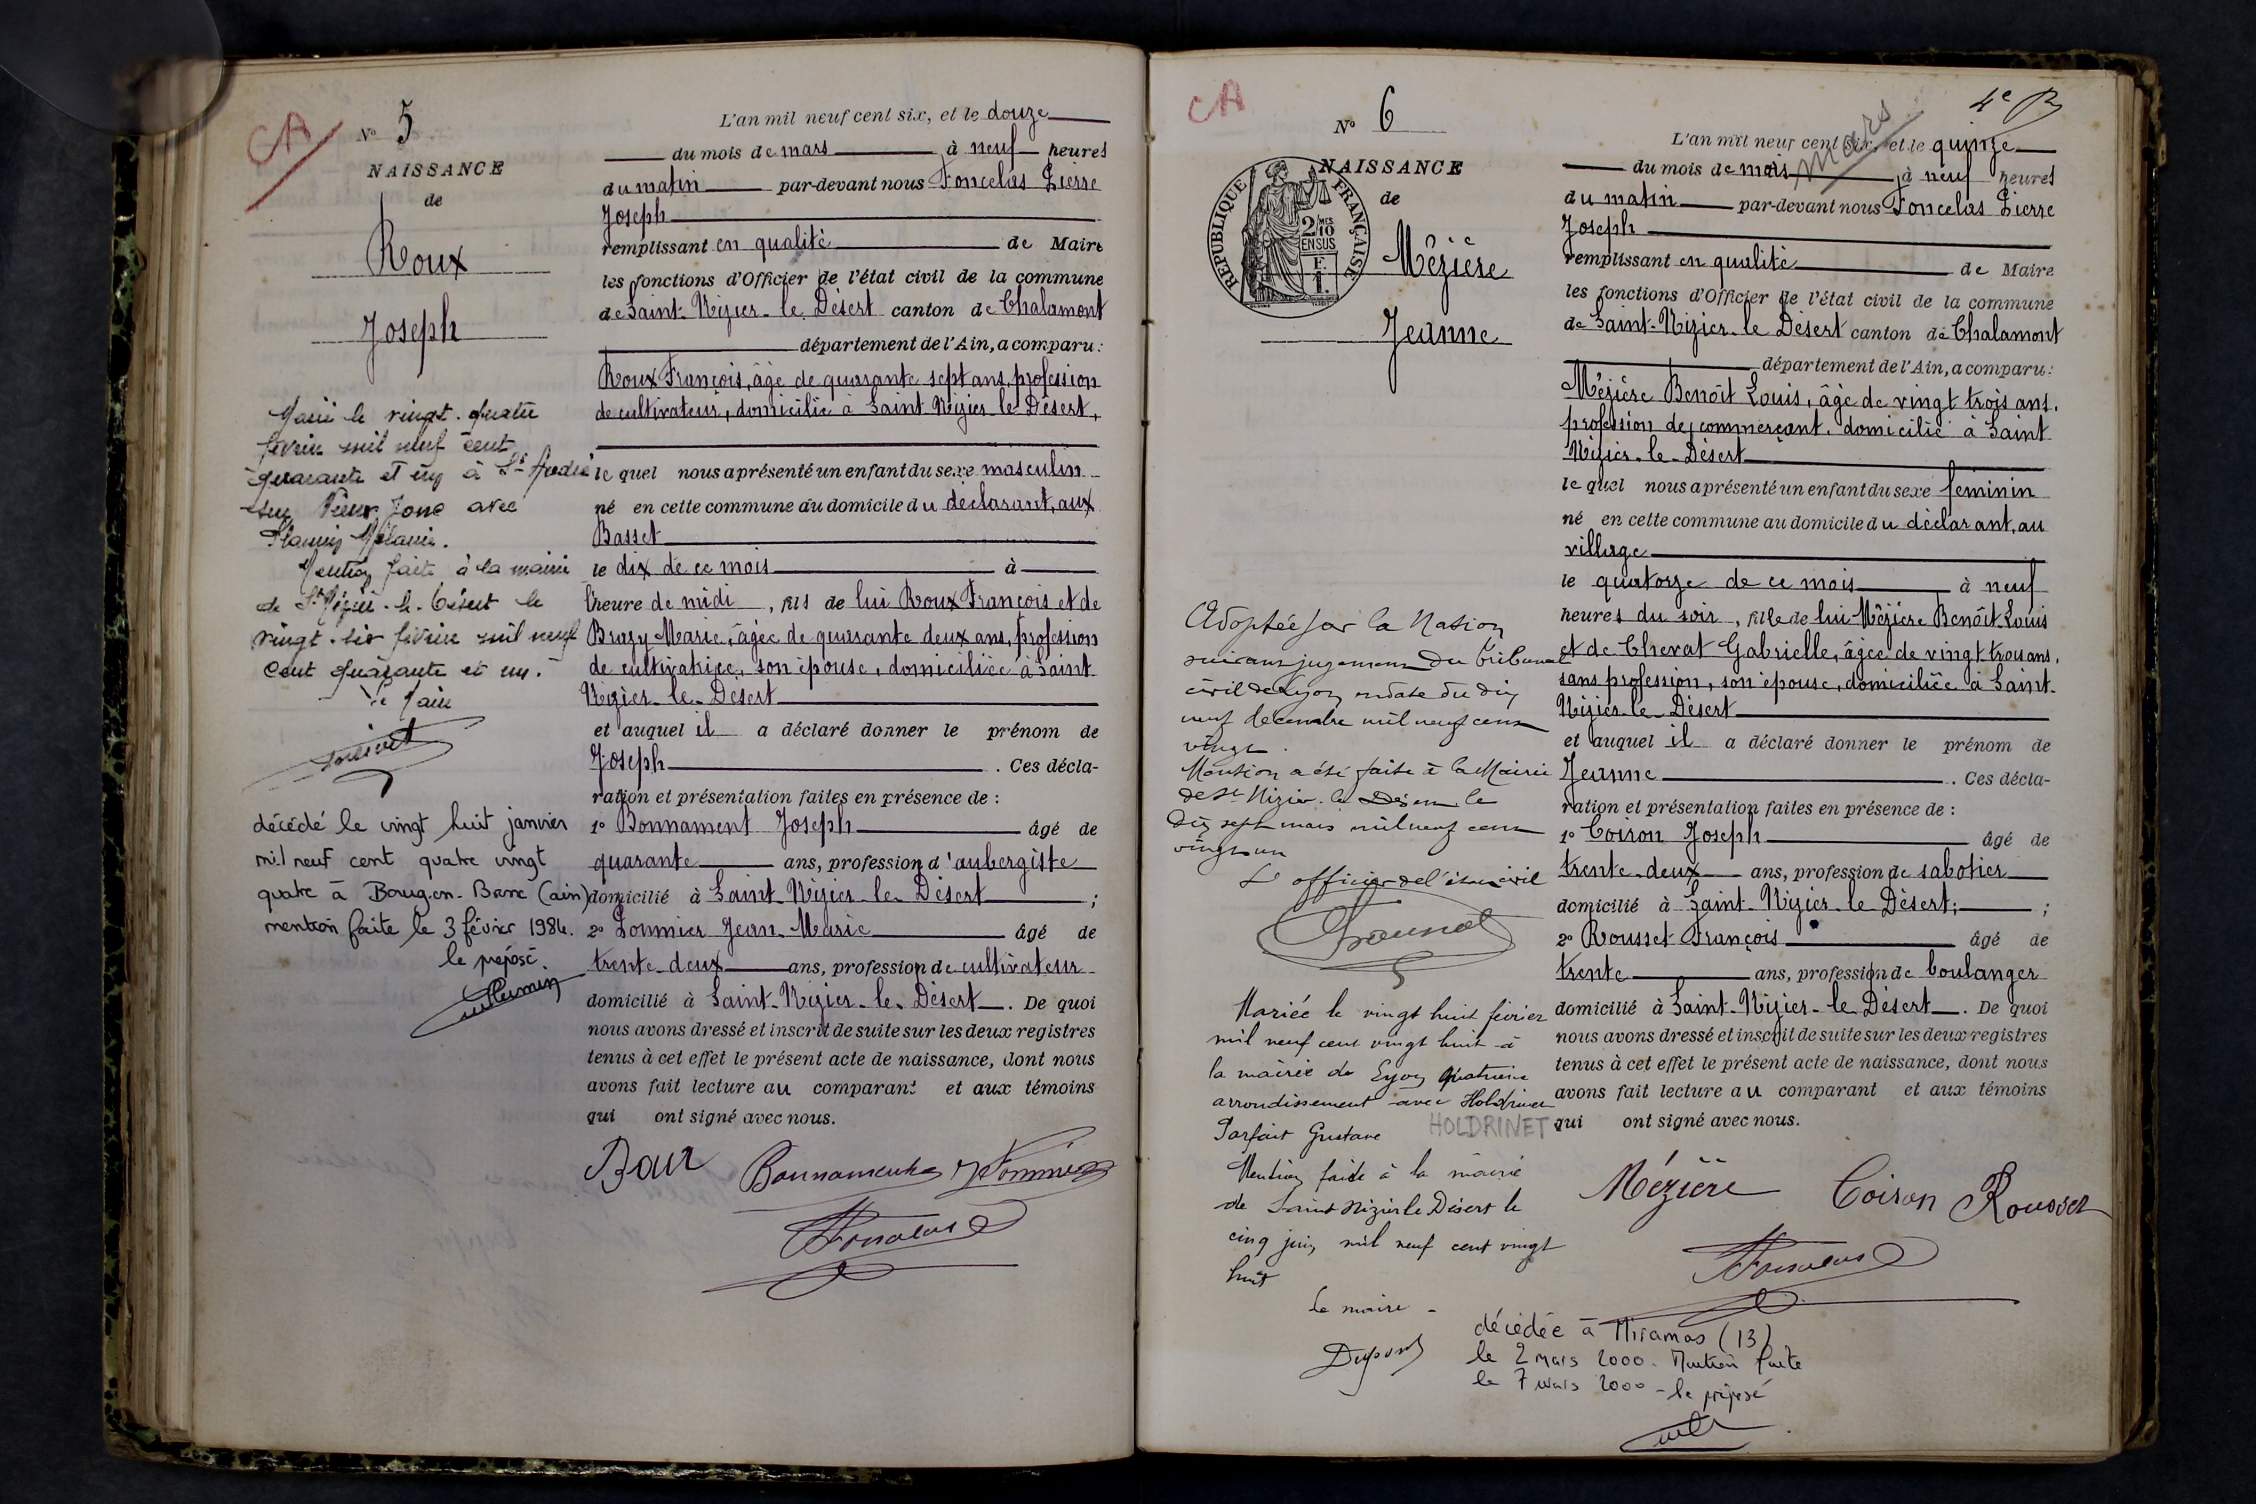 CA
N° 5
NAISSANCE
de
Roux
Joseph
Marié le vingt-quatre
février mil neuf cent
quarante et un à St André
sur Vieux Jonc avec
Mélanie.
Mention faite à la mairie
de St Nizier-le-Désert le
vingt-six février mil neuf
cent quarante et un.
Le Maire
décédé le vingt huit janvier
mil neuf cent quatre vingt
quatre à Bourg-en-Bresse (ain)
mention faite le 3 février 1984.
le préposé.
L'an mil neuf cent six, et le douze
du mois de mars à neuf heures
du matin par-devant nous Foncelas Pierre
Joseph
remplissant en qualité de Maire
les fonctions d'Officier de l'état civil de la commune
de Saint-Nizier-le-Désert canton de Chalamont
département de l'Ain, a comparu:
Roux François, âgé de quarante sept ans, profession
de cultivateur, domicilié à Saint Nizier le Désert,
le quel nous a présenté un enfant du sexe masculin
né en cette commune au domicile du déclarant, aux
Basset
le dix de ce mois à
l'heure de midi, fils de lui Roux François et de
Marie, âgée de quarante deux ans, profession
de cultivatrice, son épouse, domiciliée à Saint
Nizier-le-Désert
et auquel il a déclaré donner le prénom de
Joseph. Ces décla-
ration et présentation faites en présence de :
1° Bonnament Joseph âgé de
quarante ans, profession d'aubergiste
domicilié à Saint-Nizier-le-Désert ;
2° Pommier Jean-Marie âgé de
trente-deux ans, profession de cultivateur
domicilié à Saint-Nizier-le-Désert. De quoi
nous avons dressé et inscrit de suite sur les deux registres
tenus à cet effet le présent acte de naissance, dont nous
avons fait lecture au comparant et aux témoins
qui ont signé avec nous.
Bonnament Pommier
Foncelas
CA
4e
N° 6
NAISSANCE
de
RÉPUBLIQUE FRANÇAISE
2/10 MES
EN SUS
F.
1.
Mézière
Jeanne
Adoptée par la Nation
suivant jugement du tribunal
civil de Lyon en date du dix
neuf décembre mil neuf cent
vingt.
Mention a été faite à la Mairie
de St Nizier-le-Désert le
dix sept mars mil neuf cent
vingt un
L'officier de l'état civil
Mariée le vingt huit février
mil neuf cent vingt huit à
la mairie de Lyon quatrième
arrondissement avec Holdrinet
Parfait Gustave
HOLDRINET
Mention faite à la mairie
de Saint Nizier le Désert le
cinq juin mil neuf cent vingt
huit
Le maire
Dupont
mars
L'an mil neuf cent six, et le quinze
du mois de mais à neuf heures
du matin par-devant nous Foncelas Pierre
Joseph
remplissant en qualité de Maire
les fonctions d'Officier de l'état civil de la commune
de Saint-Nizier-le-Désert canton de Chalamont
département de l'Ain, a comparu:
Mézière Benoît Louis, âgé de vingt trois ans,
profession de commerçant, domicilié à Saint
Nizier-le-Désert
le quel nous a présenté un enfant du sexe féminin
né en cette commune au domicile du déclarant, au
village
le quatorze de ce mois à neuf
heures du soir, fille de lui Mézière Benoît Louis
et de Chevat Gabrielle, âgée de vingt-trois ans,
sans profession, son épouse, domiciliée à Saint-
Nizier-le-Désert
et auquel il a déclaré donner le prénom de
Jeanne. Ces décla-
ration et présentation faites en présence de :
1° Coiron Joseph âgé de
trente-deux ans, profession de sabotier
domicilié à Saint-Nizier-le-Désert; ;
2° Rousset François âgé de
trente ans, profession de boulanger
domicilié à Saint-Nizier-le-Désert. De quoi
nous avons dressé et inscrit de suite sur les deux registres
tenus à cet effet le présent acte de naissance, dont nous
avons fait lecture au comparant et aux témoins
qui ont signé avec nous.
Mézière Coiron Rousset
Foncelas
décédée à Miramas (13)
le 2 mars 2000. Mention faite
le 7 mars 2000 - le préposé